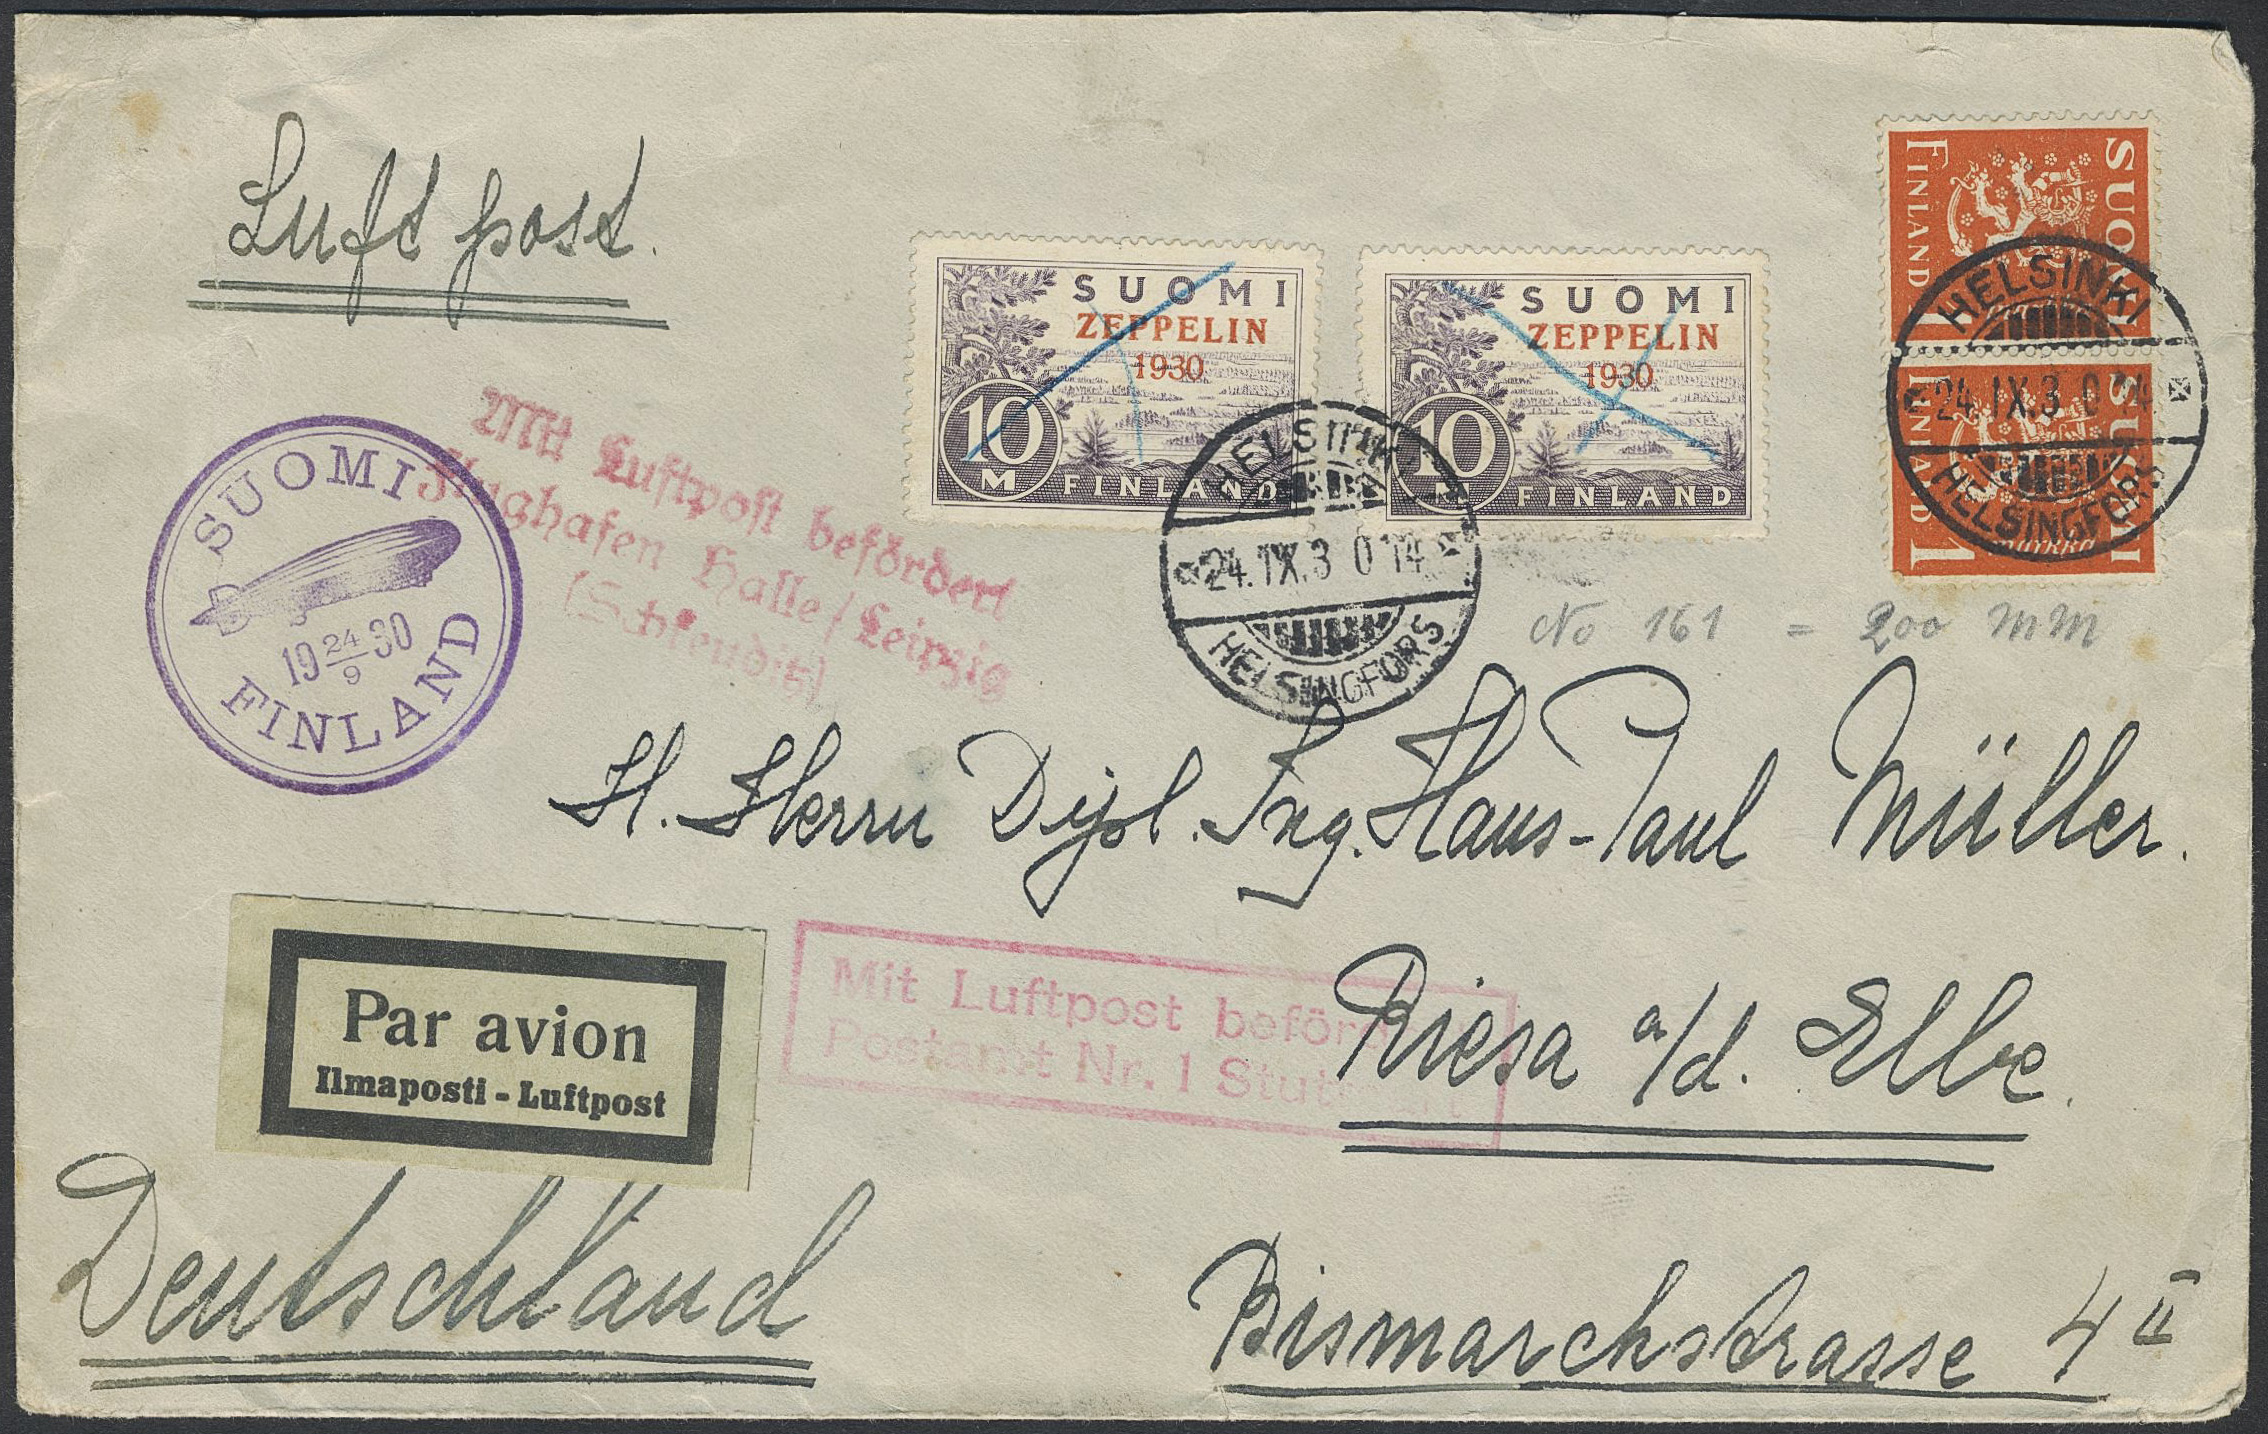 Luftpost.
SUOMI
ZEPPELIN
1930
10
M
FINLAND
SUOMI
ZEPPELIN
1930
10
M
FINLAND
SUOMI
FINLAND
1
SUOMI
FINLAND
1
MARKKA
HELSINKI
24.IX.30 14
HELSINGFORS
HELSINKI
24.IX.30 14
HELSINGFORS
Mit Luftpost befördert
Flughafen Halle/Leipzig
(Schkeuditz)
SUOMI
19 24/9 30
FINLAND
No 161 = 200 MM
H. Herrn Dipl. Ing. Hans-Paul Müller.
Par avion
Ilmaposti - Luftpost
Mit Luftpost beförd
Postamt Nr. 1 Stuttgart
Riesa a/d. Elbe.
Deutschland
Bismarckstrasse 4 II